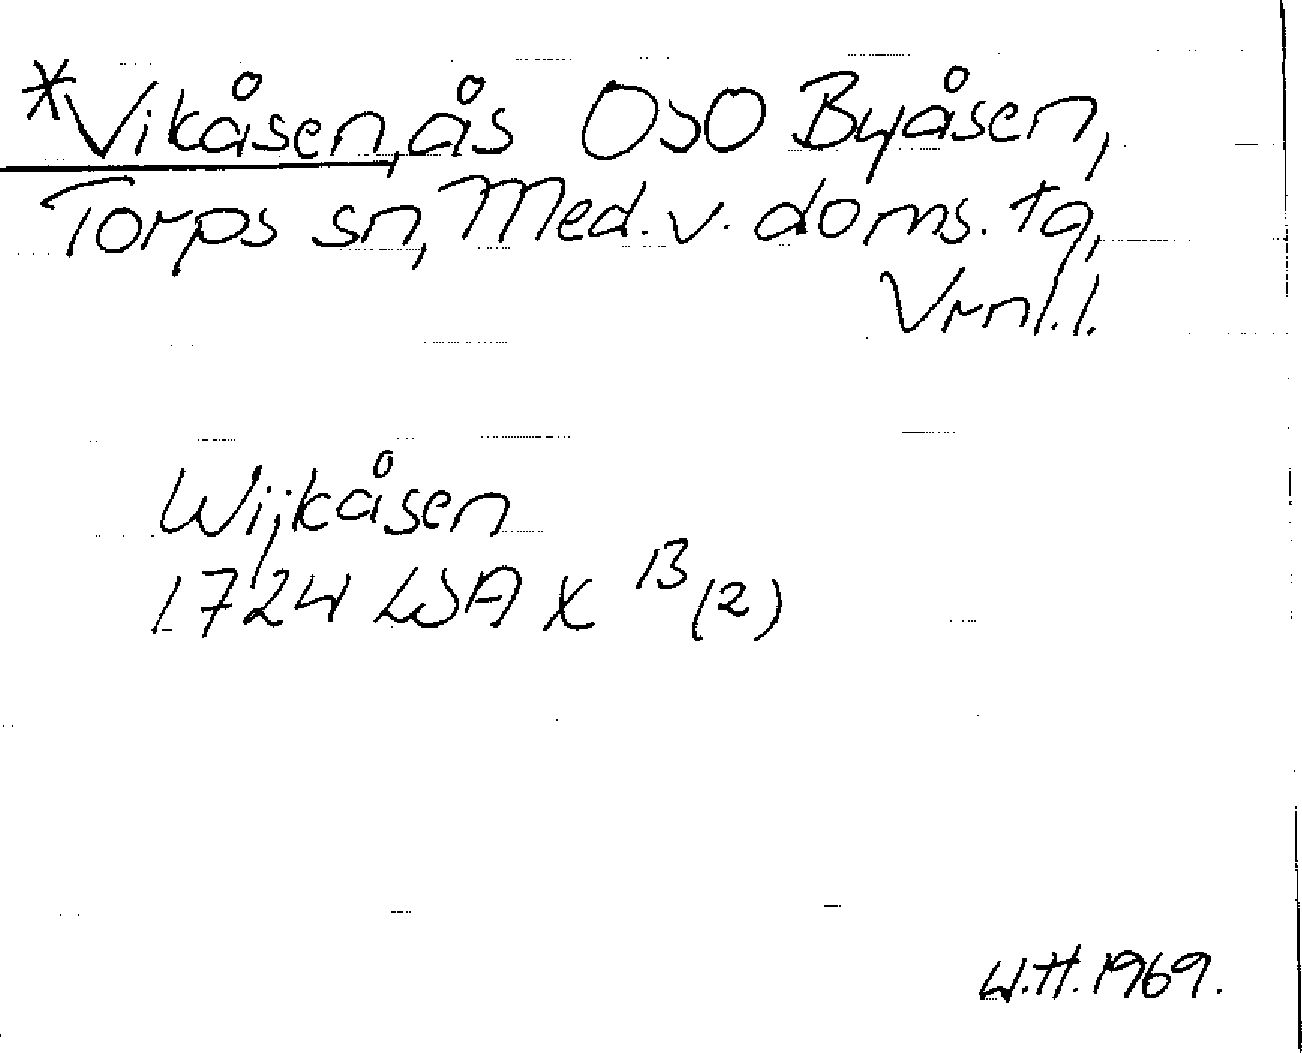 *Vikåsen, ås OSO Byåsen,
Torps sn, Med. v. doms. tg,
Vrnl. l.
Wijkåsen
1724 LSA X 13 (2)
W.H. 1969.